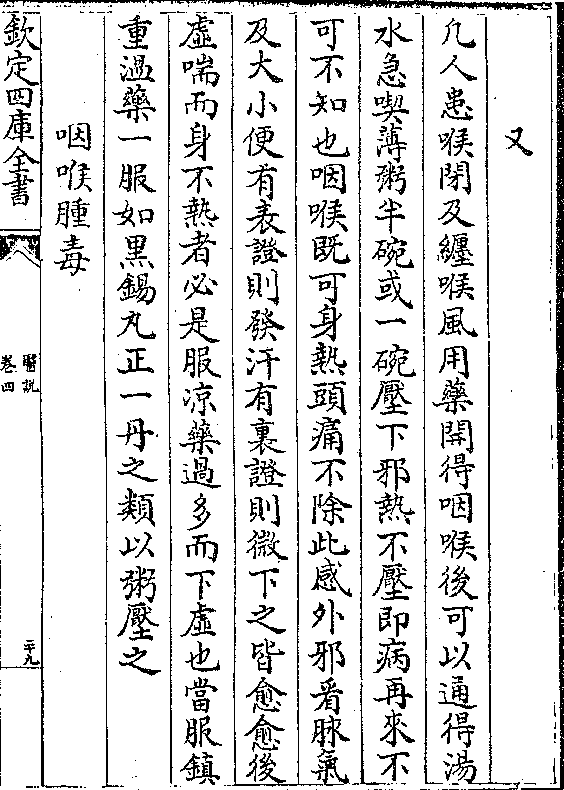 又
凡人患喉閉及纏喉風用藥開得咽喉後可以通得湯
水急喫薄粥半碗或一碗壓下邪熱不壓即病再來不
可不知也咽喉既可身熱頭痛不除此感外邪看脉氣
及大小便有表證則發汗有裏證則微下之皆愈愈後
虛喘而身不熱者必是服凉藥過多而下虛也當服鎮
重温藥一服如黑錫丸正一丹之類以粥壓之
咽喉腫毒
欽定四庫全書
醫説
卷四
二十九